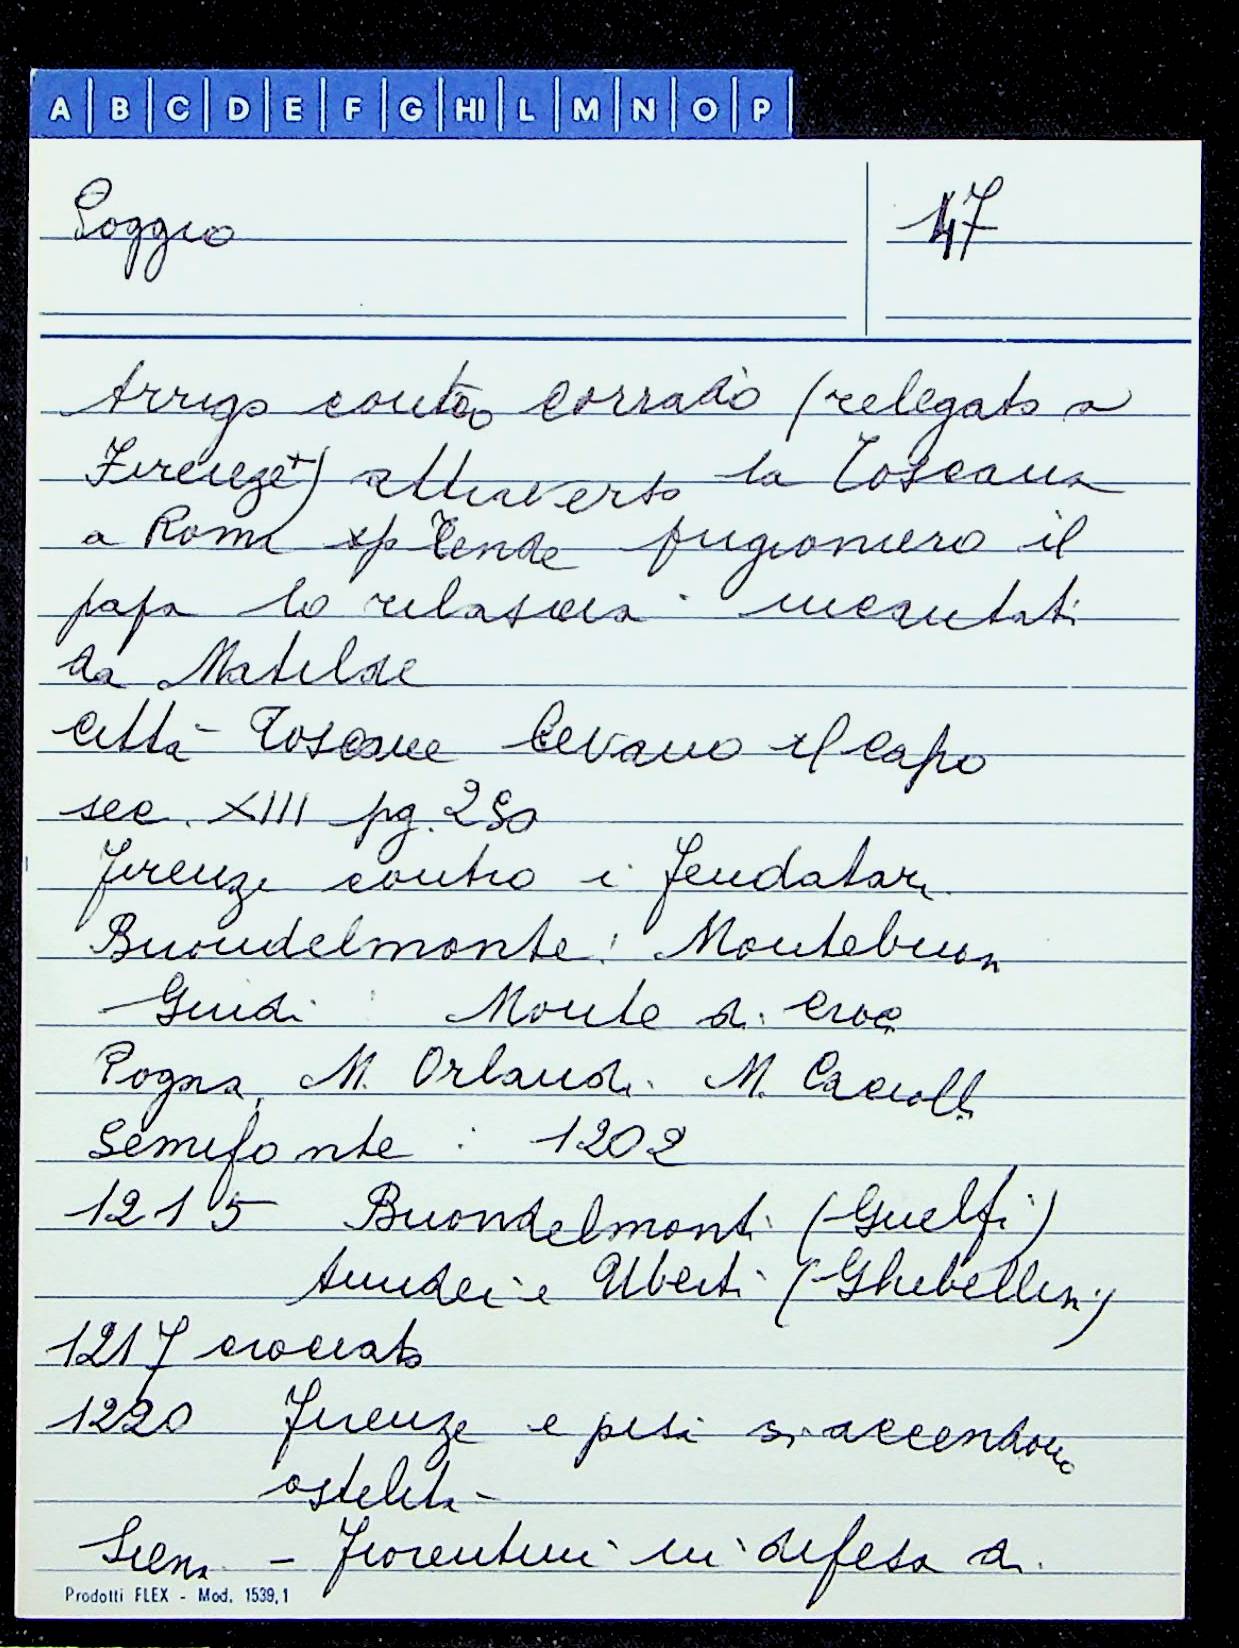 A B C D E F G HI L M N O P
Poggio
47
Arrigo contro Corrado (relegato a
Firenze+) attraverso la Toscana
a Roma prende prigioniero il
papa lo rilascia
da Matilde
Città Toscane levano il capo
sec. XIII pg. 250
Firenze contro i feudatari
Buondelmonte: Montebuon
Guidi : Monte di Croce
Pogna, M. Orlandi. M. Cacciolli
Semifonte : 1202
1215 Buondelmonti (Guelfi)
Amidei e Uberti (Ghibellini)
1217 crociata
1220 Firenze e pisa si accendono
ostilità -
Siena - Fiorentini in difesa di
Prodotti FLEX - Mod. 1539,1